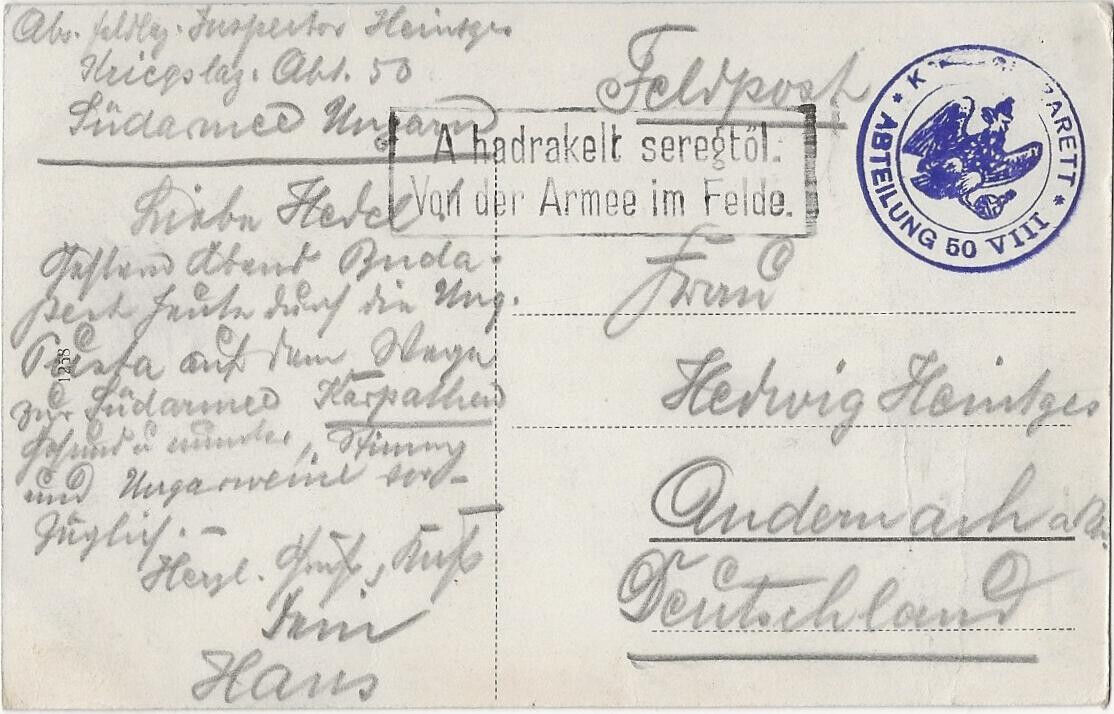 Abs. Feldlaz. Inspector Heintges
Kriegslaz. Abt. 50
Südarmee Ungarn
Feldpost
A hadrakelt seregtől.
Von der Armee im Felde.
ARETT * ABTEILUNG 50 VIII *
Liebe Hedel
Gestern Abend Buda-
pest heute durch die Ung.
Pusta auf dem Wege
zur Südarmee Karpathen
Gesund u munter, Stimmg
und Ungarweine vor-
züglich. –
Herzl. Gruß, Kuß
Dein
Hans
1258
Frau
Hedwig Heintges
Andernach a Rh.
Deutschland